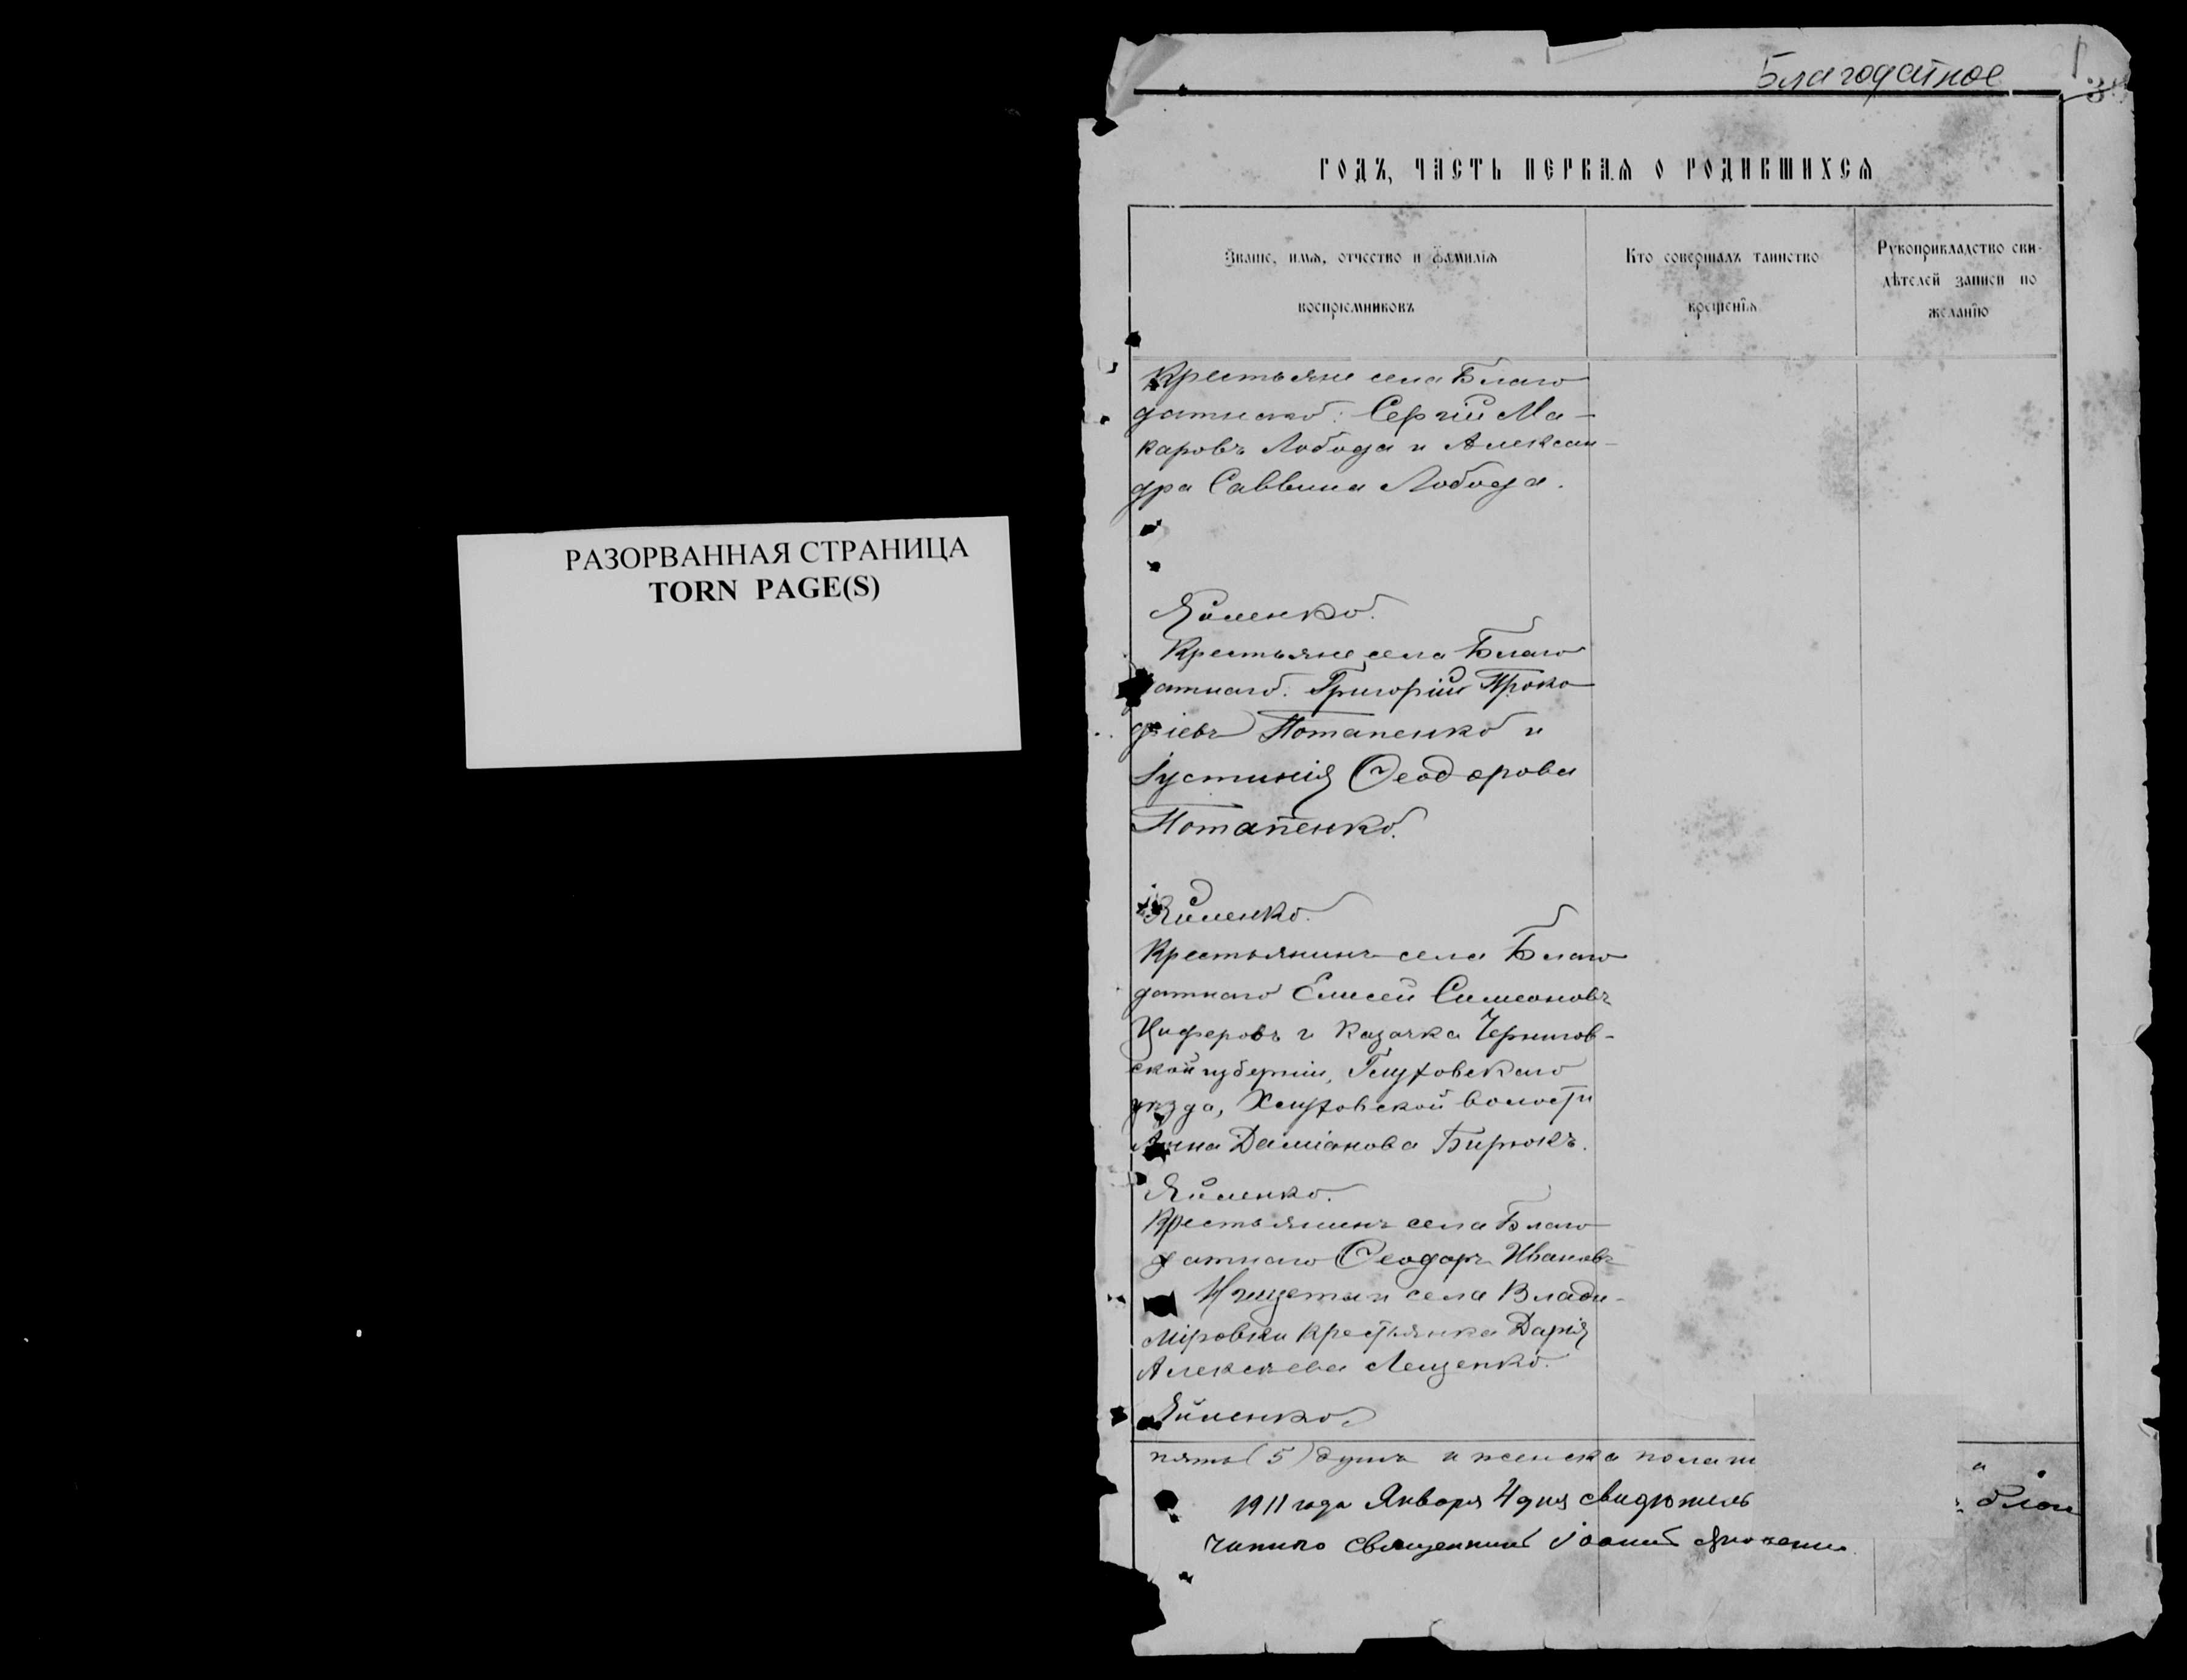 Благодатное
3
ГОДЪ, ЧАСТЬ ПЕРВАЯ О РОДИВШИХСЯ
Званіе, имя, отчество и фамилія
воспріемниковъ
Кто совершалъ таинство
крещенія
Рукоприкладство сви-
дѣтелей записи по
желанію
РАЗОРВАННАЯ СТРАНИЦА
TORN PAGE(S)
Крестьяне села Благо
датнаго: Сергій Ма-
каровъ Лобода и Алексан-
дра Саввина Лобода.
Крестьяне села Благо
датнаго: Григорій Проко
фіевъ Потапенко и
Іустинія Ѳеодорова
Потапенко.
Крестьянинъ села Благо
датнаго Елисей Симеоновъ
и казачка Чернигов-
ской губерніи, Глуховскаго
уѣзда, волости
Анна Даміанова Бирюкъ.
Крестьянинъ села Благо
датнаго Ѳеодоръ Ивановъ
и села Влади-
міровки крестьянка Дарія
Алексѣева Лещенко.
пять (5) душъ и женска пола
1911 года Января 4 дня свидѣтель
священникъ Іоаннъ